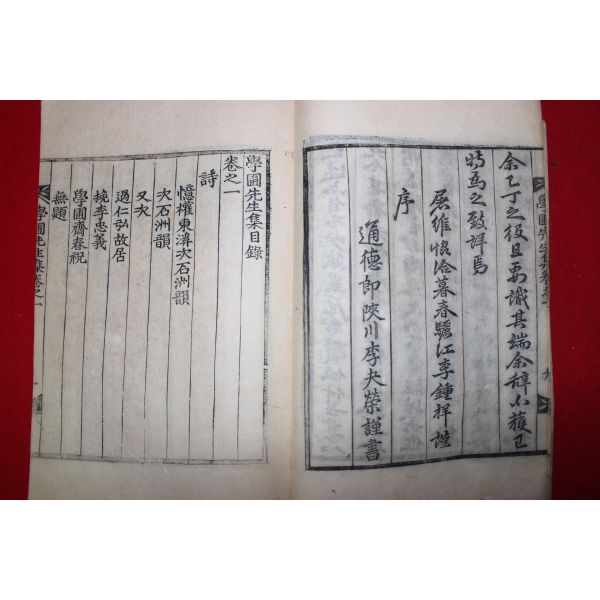 余乙丁之後且要識其端余辭不獲已
特爲之致詳焉
屠維恪洽暮春驪江李鍾祥
序
通德郎陜川李夬榮謹書
學圃先生集目錄
卷之一
詩
憶權東溟次石洲韻
次石洲韻
又次
過仁弘故居
挽李忠義
學圃齋春祝
無題
學圃先生集卷之一